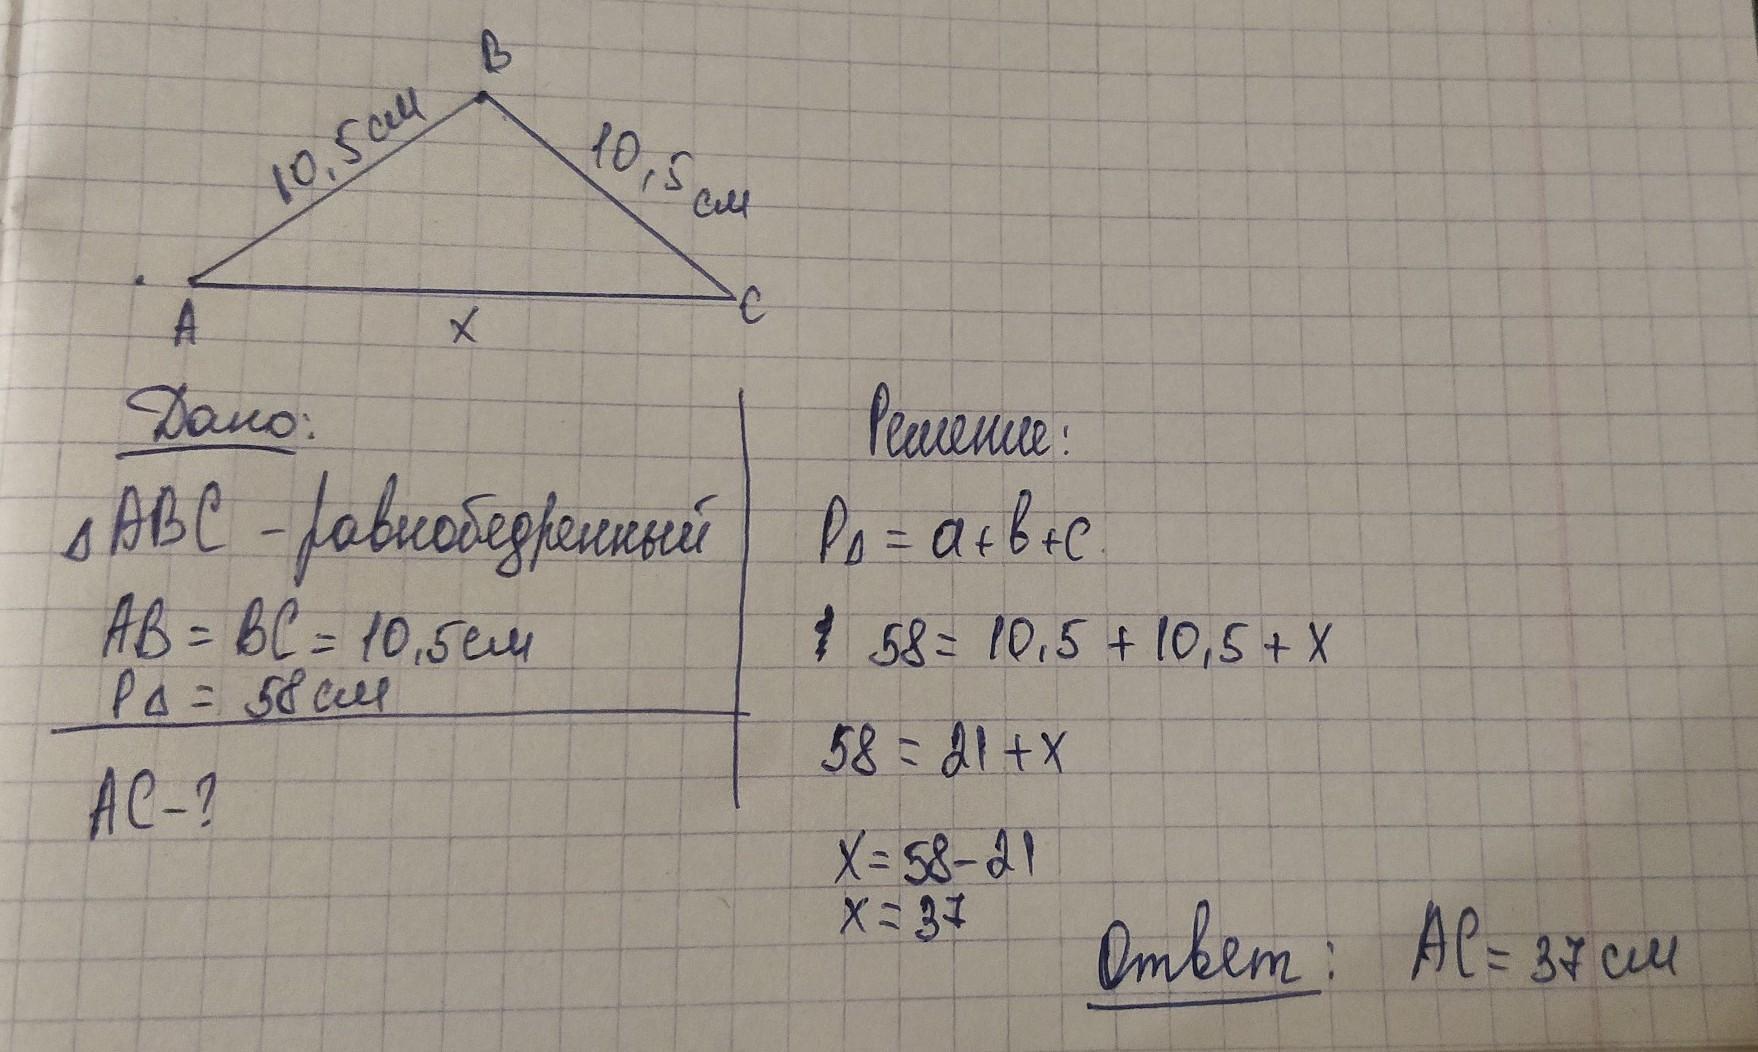 B
10,5см
10,5см
A
x
C
Дано:
△ABC - равнобедренный
AB = BC = 10,5см
P△ = 58см
AC-?
Решение:
P△ = a+b+c
58 = 10,5 + 10,5 + x
58 = 21 + x
x = 58 - 21
x = 37
Ответ: AC = 37 см